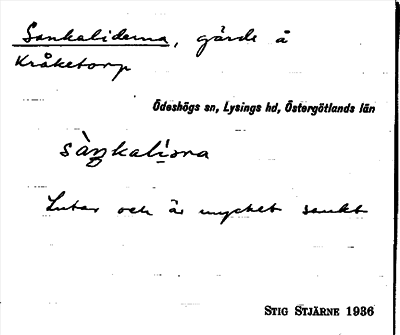 Sankaliderna, gärde å
Kråketorp
Ödeshögs sn, Lysings hd, Östergötlands län
Lutar och är mycket sankt
STIG STJÄRNE 1936